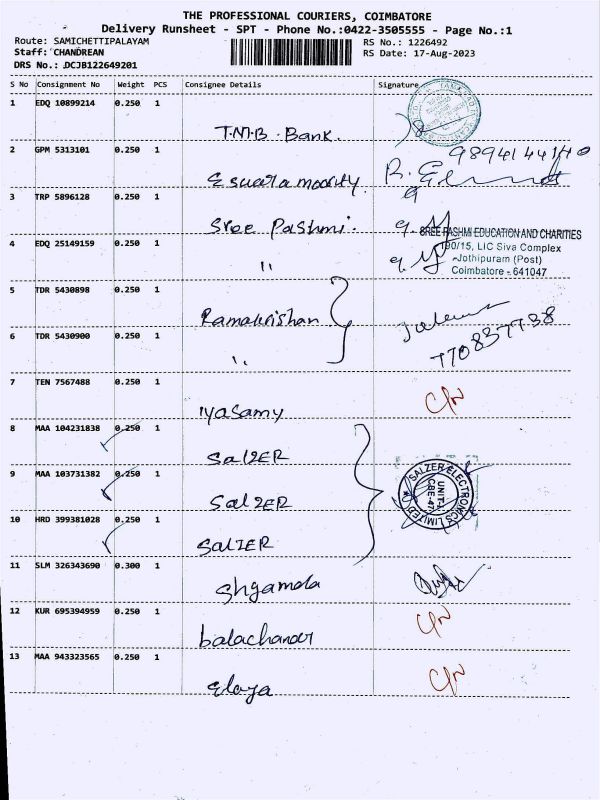 THE PROFESSIONAL COURIERS, COIMBATORE
Delivery Runsheet - SPT - Phone No.:0422-3505555 - Page No.:1
Route: SAMICHETTIPALAYAM RS No.: 1226492
Staff: CHANDREAN RS Date: 17-Aug-2023
DRS No.: DCJB122649201
S No Consignment No Weight PCS Consignee Details Signature
1 EDQ 10899214 0.250 1
T.M.B. Bank.
2 GPM 5313101 0.250 1 9894144140
Eswaramoorthy.
3 TRP 5896128 0.250 1
Sree Pashmi. SREE PASHMI EDUCATION AND CHARITIES
4 EDQ 25149159 0.250 1 190/15, LIC Siva Complex
Jothipuram (Post)
" Coimbatore - 641047
5 TDR 5430898 0.250 1
Ramakrishan
6 TDR 5430900 0.250 1 770837738
"
7 TEN 7567488 0.250 1
iyasamy C/N
8 MAA 104231838 0.250 1
SalZER
9 MAA 103731382 0.250 1 SALZER ELECTRONICS LIMITED
UNIT-I
CBE-47
SalZER
10 HRD 399381028 0.250 1
SalZER
11 SLM 326343690 0.300 1
Shyamala
12 KUR 695394959 0.250 1
balachandar C/N
13 MAA 943323565 0.250 1
Elaya C/N